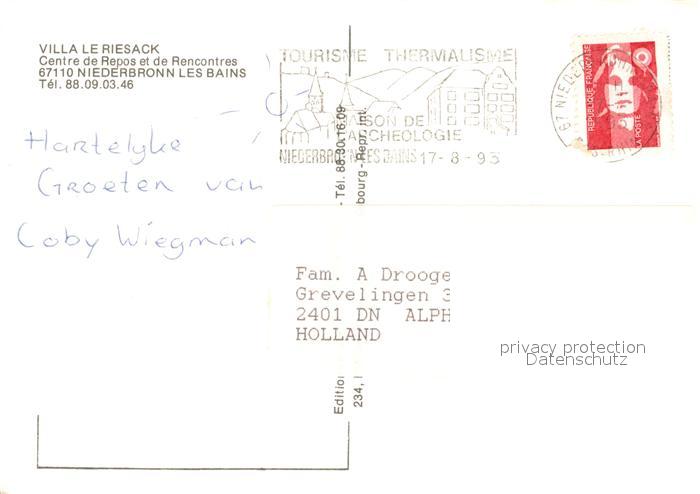 VILLA LE RIESACK
Centre de Repos et de Rencontres
67110 NIEDERBRONN LES BAINS
Tél. 88.09.03.46
TOURISME THERMALISME
MAISON DE
L'ARCHEOLOGIE
NIEDERBRONN LES BAINS 17-8-93
67 NIEDER
REPUBLIQUE FRANÇAISE
LA POSTE
Hartelyke
Groeten van
Coby Wiegman
- Tél. 88.30.16.09
bourg - Repr. Int.
Edition
234,
Fam. A Drooge
Grevelingen 3
2401 DN ALPH
HOLLAND
privacy protection
Datenschutz